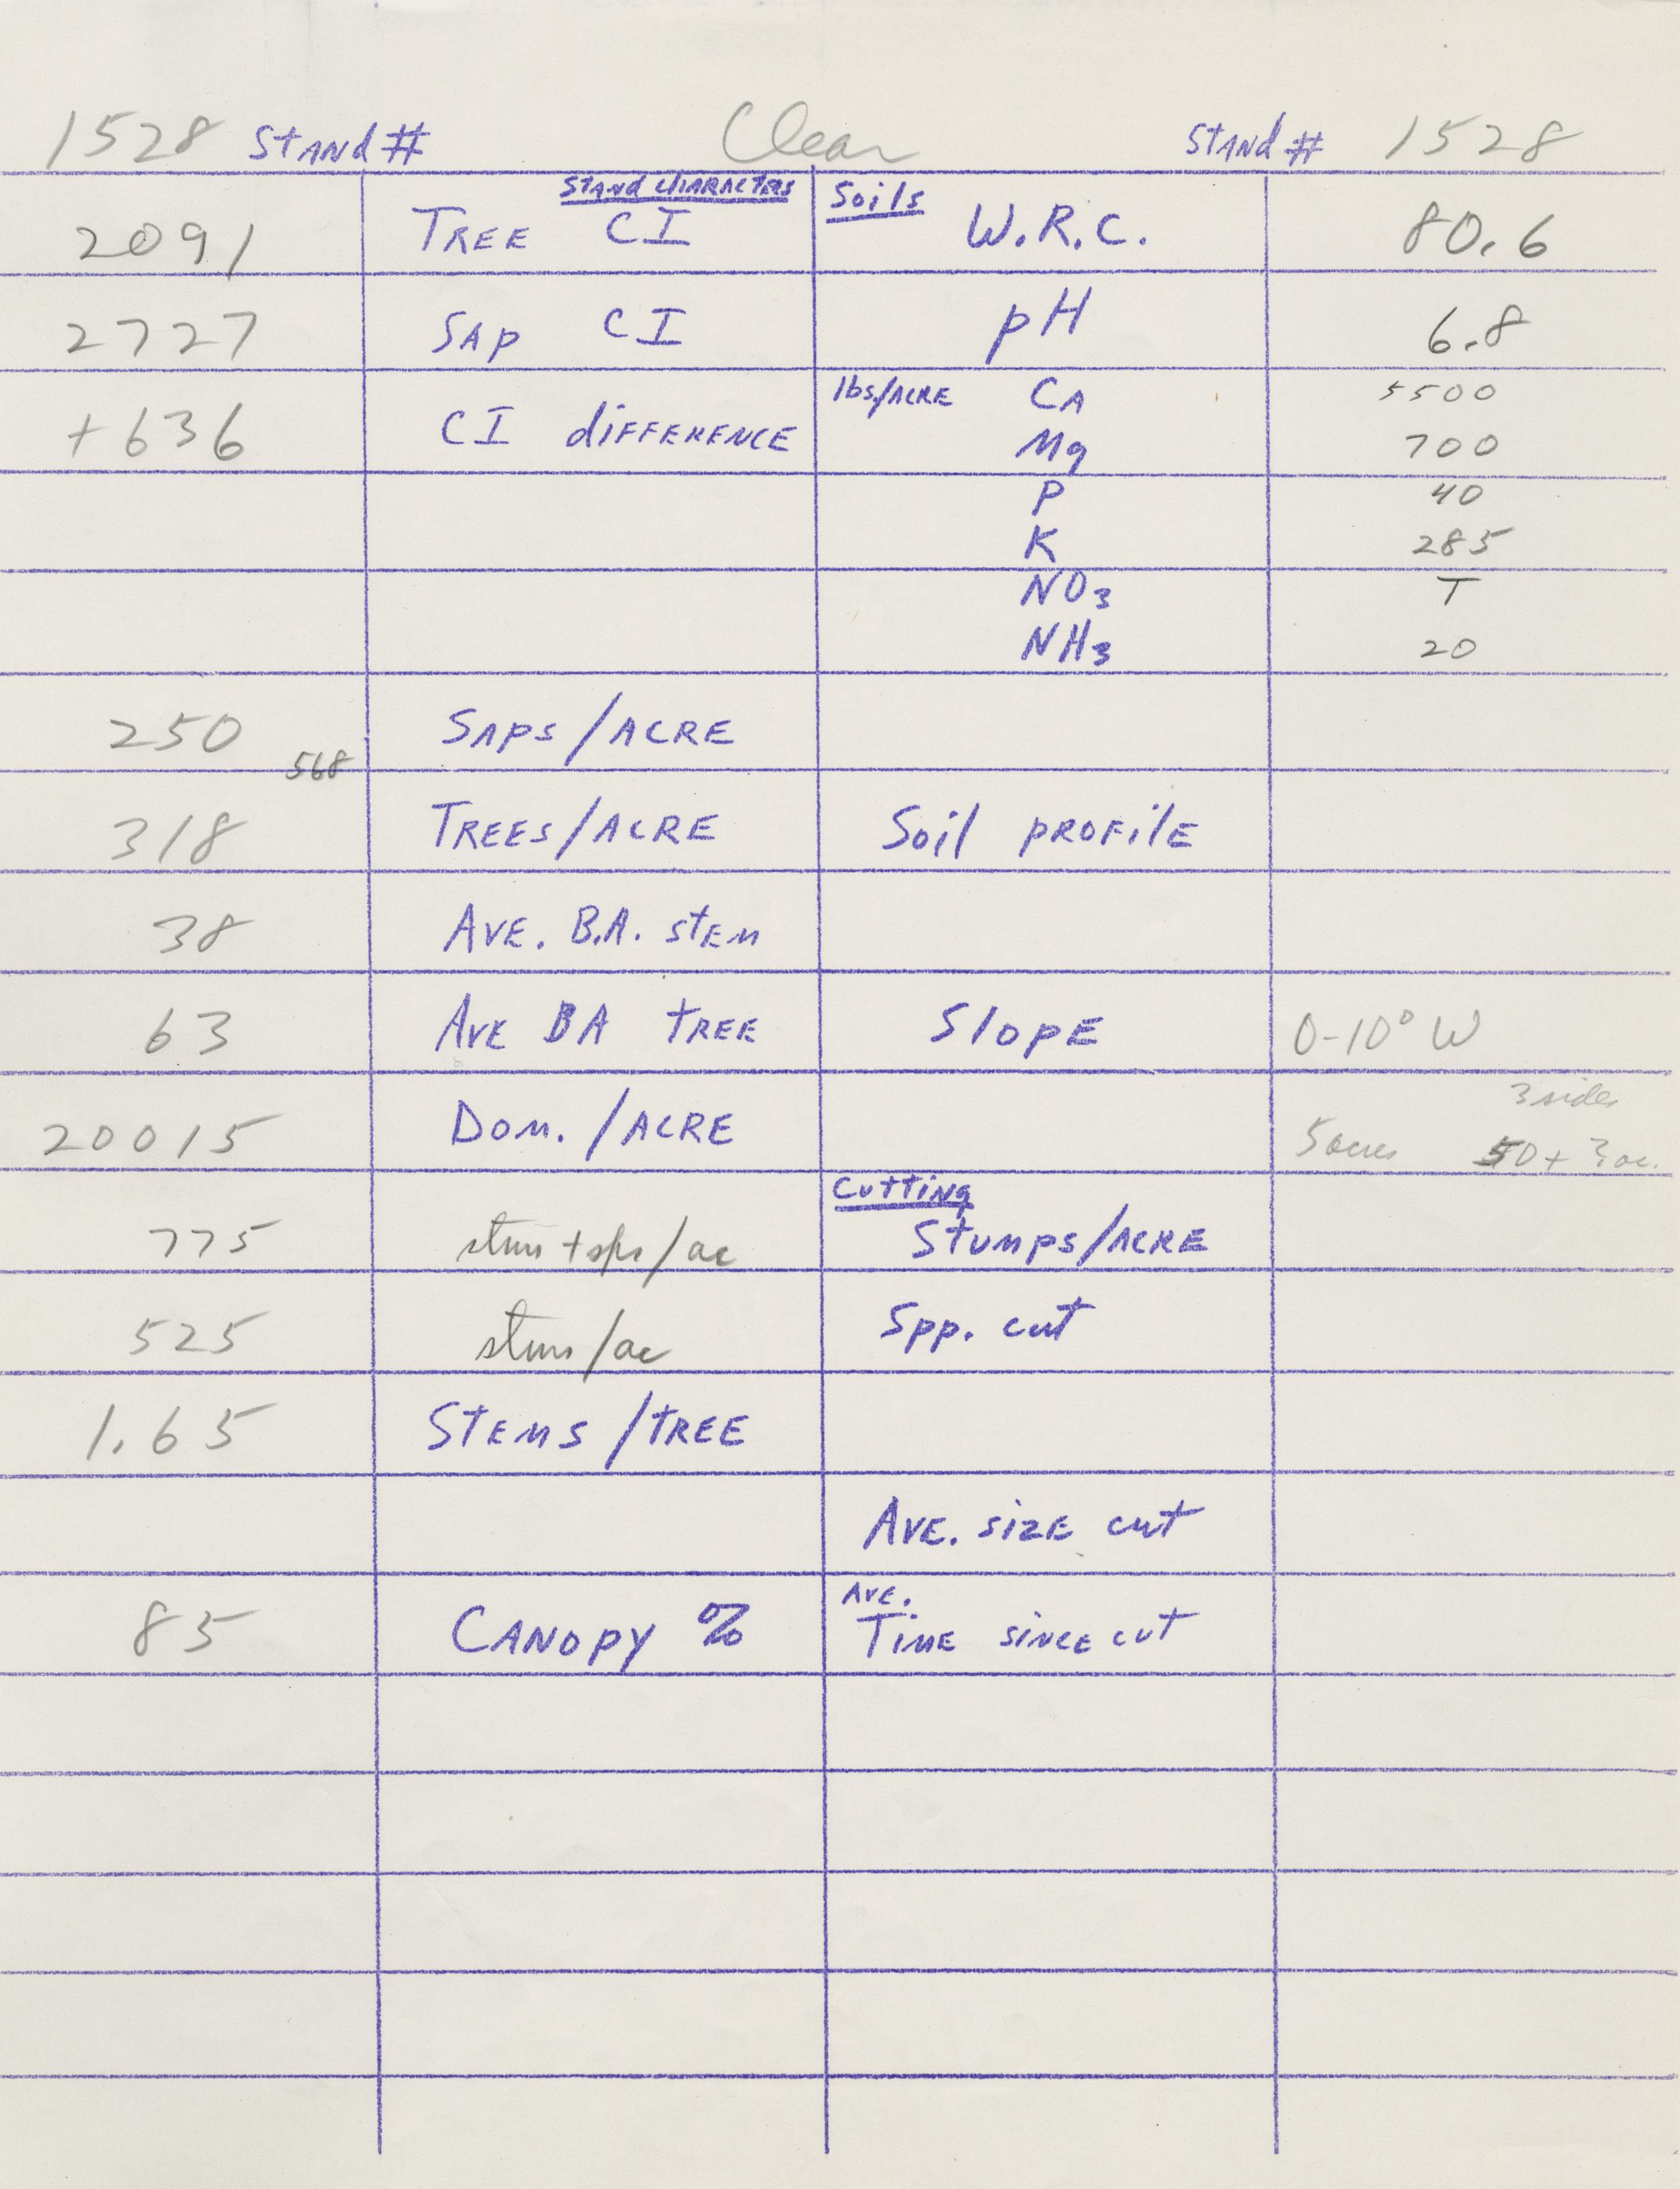 1528 Stand # Clear Stand # 1528
Stand characters Soils
2091 Tree CI W.R.C. 80.6
2727 Sap CI pH 6.8
+636 CI difference lbs./acre Ca 5500
Mg 700
P 40
K 285
NO3 T
NH3 20
250 Saps/acre
568
318 Trees/acre Soil profile
38 Ave. B.A. stem
63 Ave BA tree Slope 0-10° W
3 sides
20015 Dom./acre 5 acres 50+ ac.
Cutting
775 stms + sps/ac Stumps/acre
525 stms/ac Spp. cut
1.65 Stems/tree
Ave. size cut
Ave.
85 Canopy % Time since cut